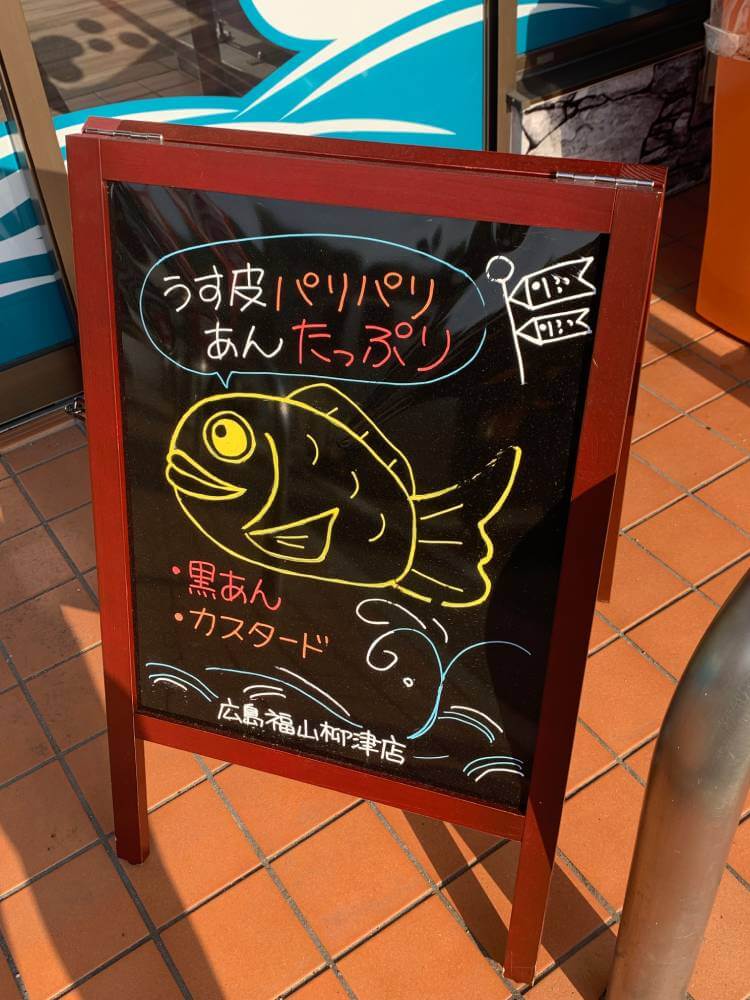 うす皮パリパリ
あんたっぷり
・黒あん
・カスタード
広島福山柳津店